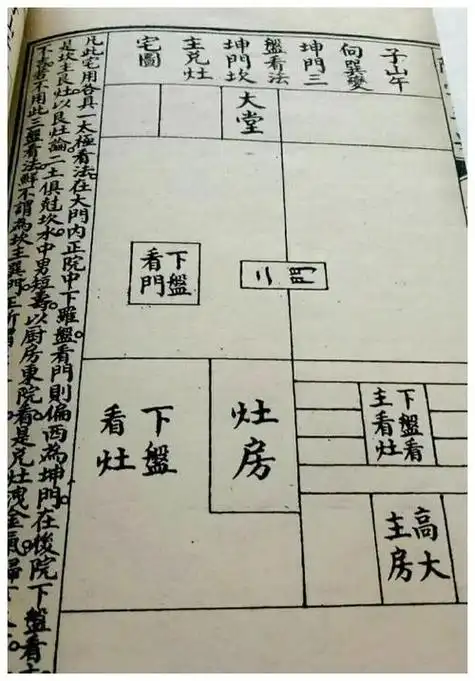 子山午
向巽變
坤門三
盤看法
坤門坎
主兌灶
宅圖
大堂
二門
下盤
看門
下盤看
主看灶
灶房
下盤
看灶
高大
主房
凡此宅用各具一太極看法在大門內正院中下羅盤看門則偏西為坤門在後院下盤看
是坎主艮灶以艮灶論二土俱尅坎水中男短壽以厨房東院看是兌灶洩金氣歸
者不用此三盤看法鮮不謂為坎主巽門正所謂